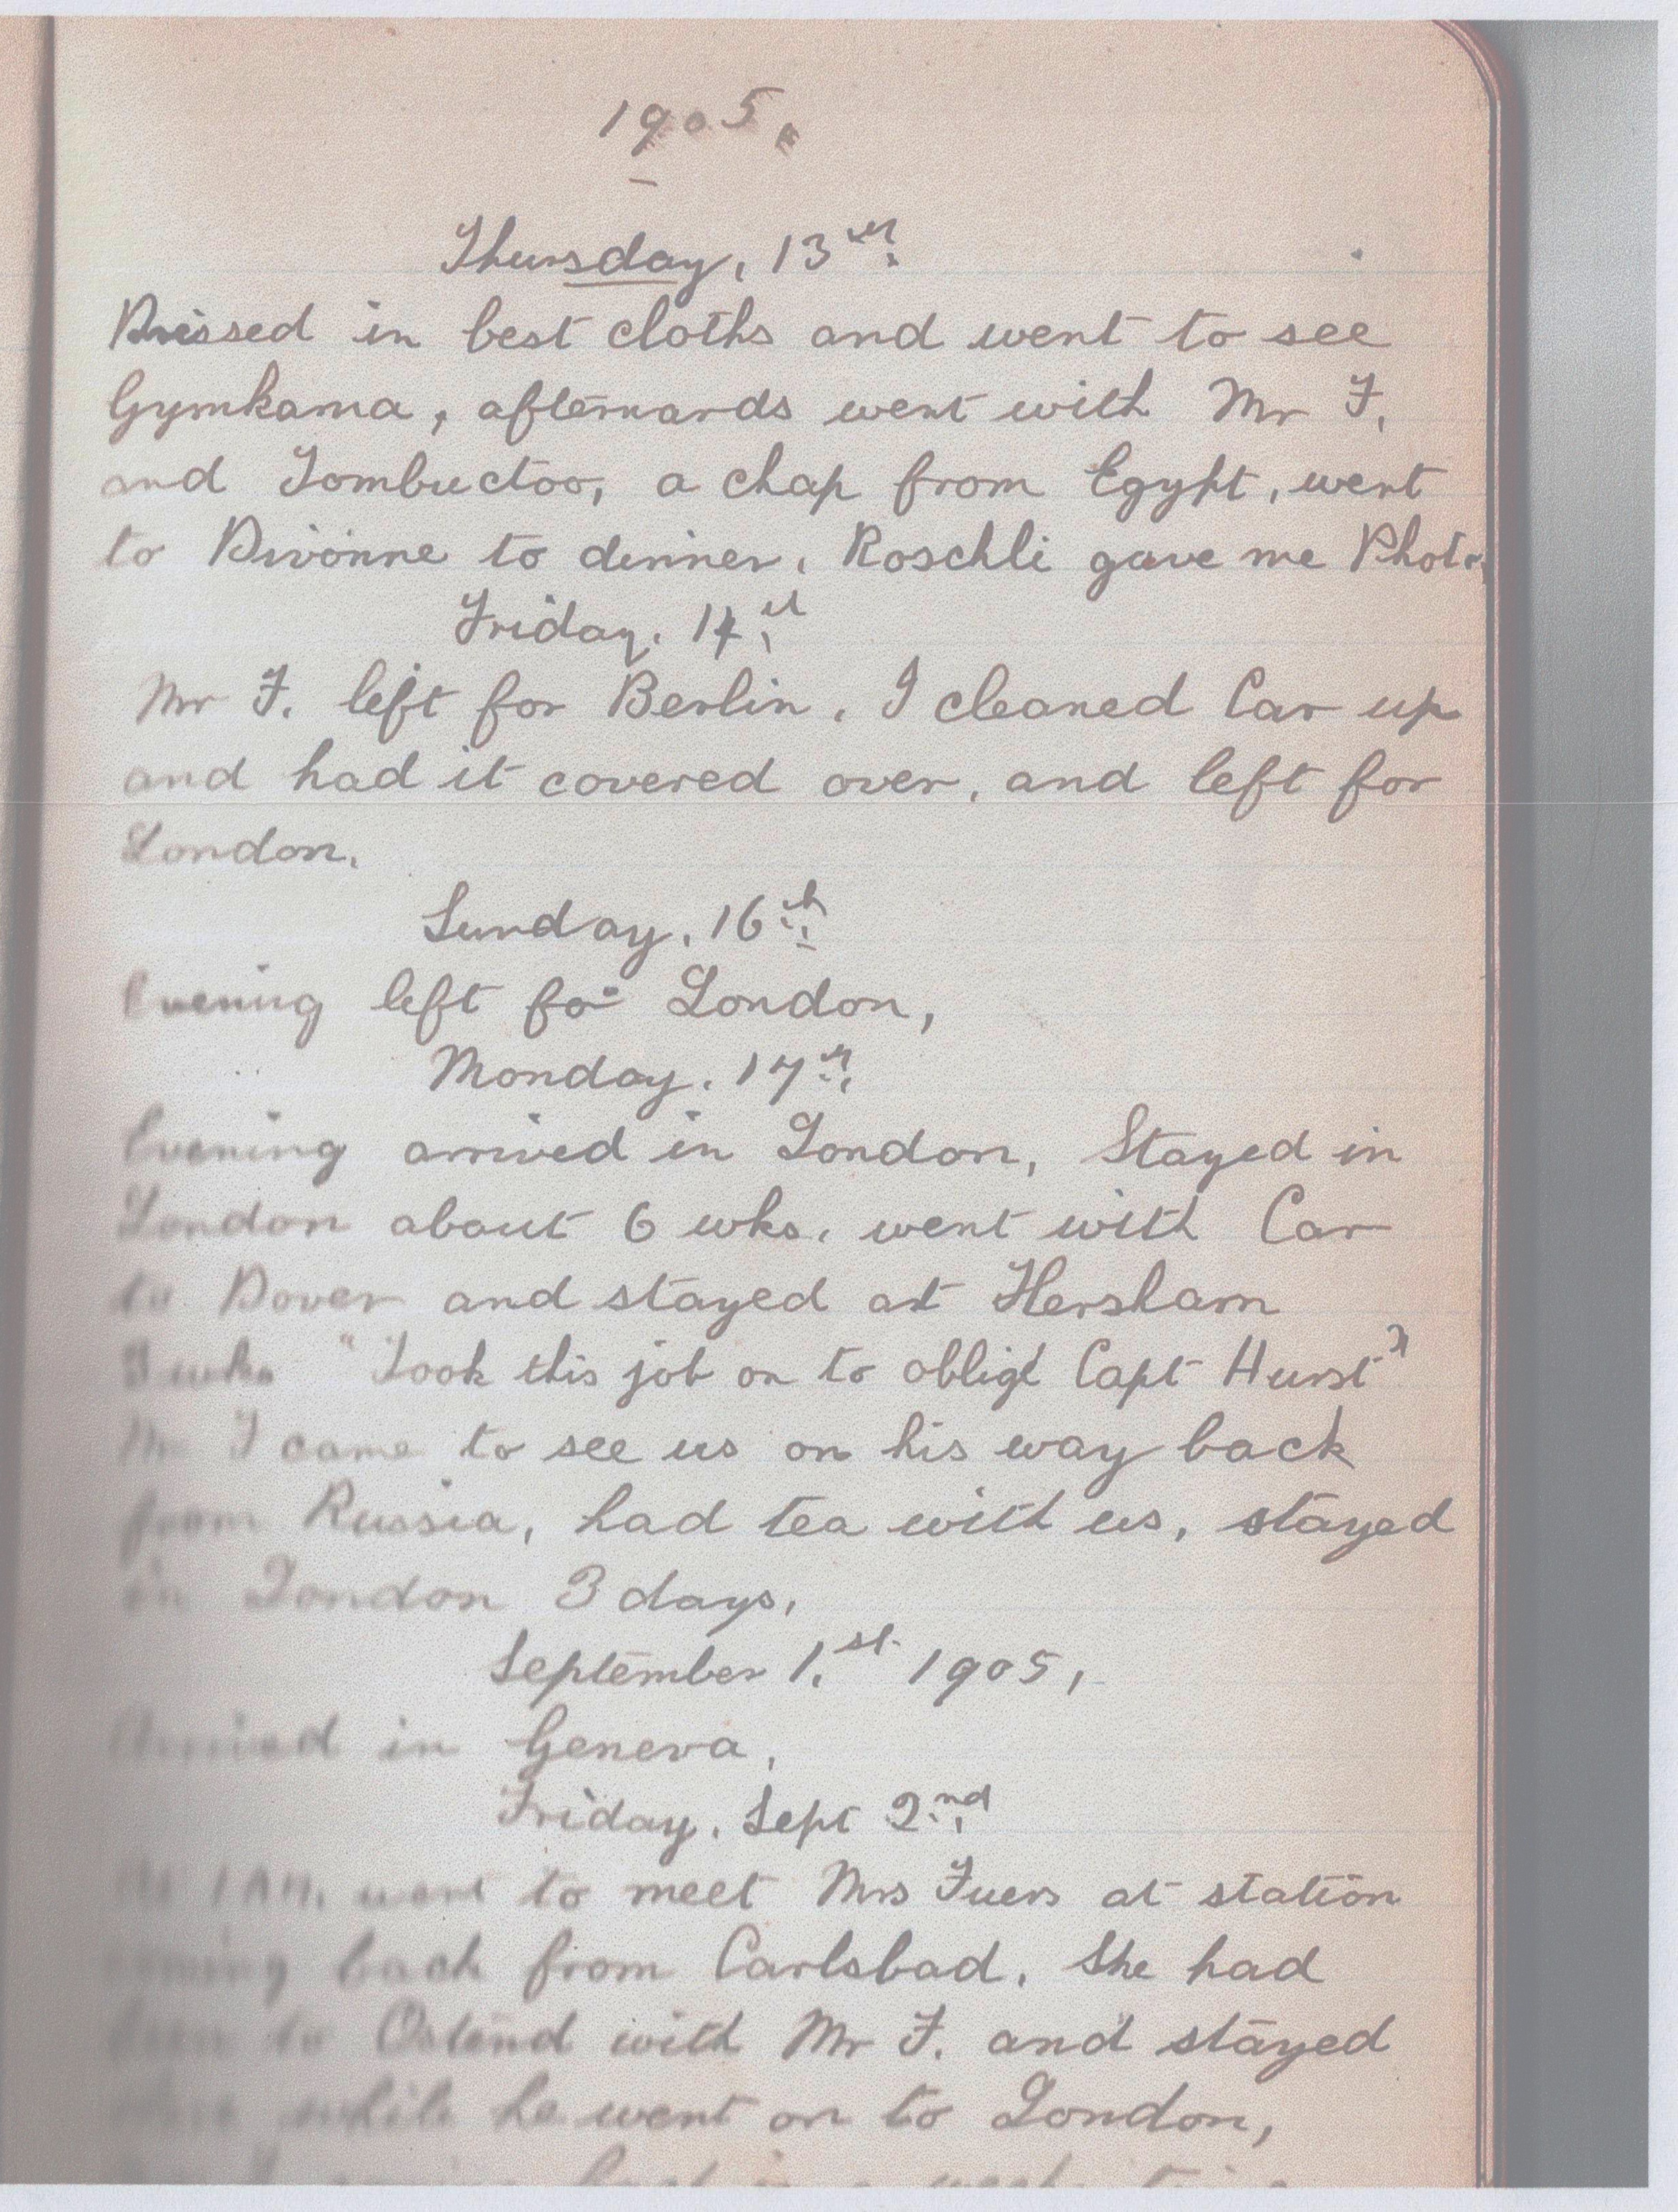 1905.
Thursday, 13th.
Dressed in best cloths and went to see
Gymkama, afterwards went with Mr F.
and Tombuctoo, a chap from Egypt, went
to Divonne to dinner. Roschli gave me Photo.
Friday. 14th
Mr F. left for Berlin. I cleaned Car up
and had it covered over, and left for
London.
Sunday. 16th.
Evening left for London,
Monday. 17th.
Evening arrived in London, Stayed in
London about 6 wks. went with Car
to Dover and stayed at Hersham
3 wks "Took this job on to oblige Capt Hurst"
Mr F came to see us on his way back
from Russia, had tea with us, stayed
in London 3 days.
September 1st 1905,
Arrived in Geneva,
Friday. Sept 2nd
At 1 AM. went to meet Mrs Fuers at station
coming back from Carlsbad. She had
been to Ostend with Mr F. and stayed
while he went on to London,
back in a week